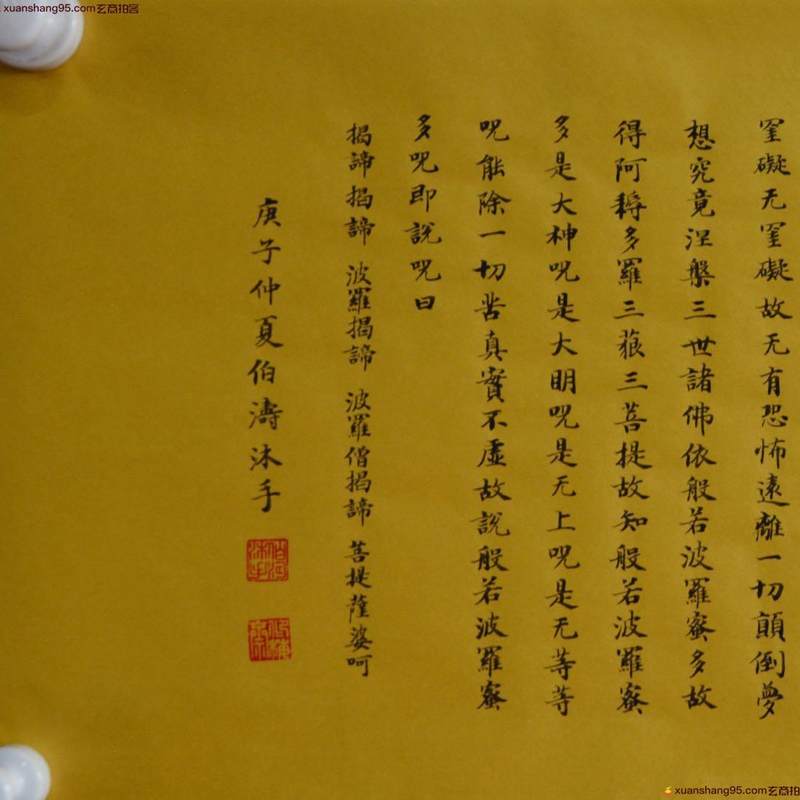 xuanshang95.com玄商拍客
罣礙无罣礙故无有恐怖遠離一切顛倒夢
想究竟涅槃三世諸佛依般若波羅蜜多故
得阿耨多羅三藐三菩提故知般若波羅蜜
多是大神呪是大明呪是无上呪是无等等
呪能除一切苦真實不虛故說般若波羅蜜
多呪即說呪曰
揭諦揭諦 波羅揭諦 波羅僧揭諦 菩提薩婆呵
庚子仲夏伯濤沐手
xuanshang95.com玄商拍客